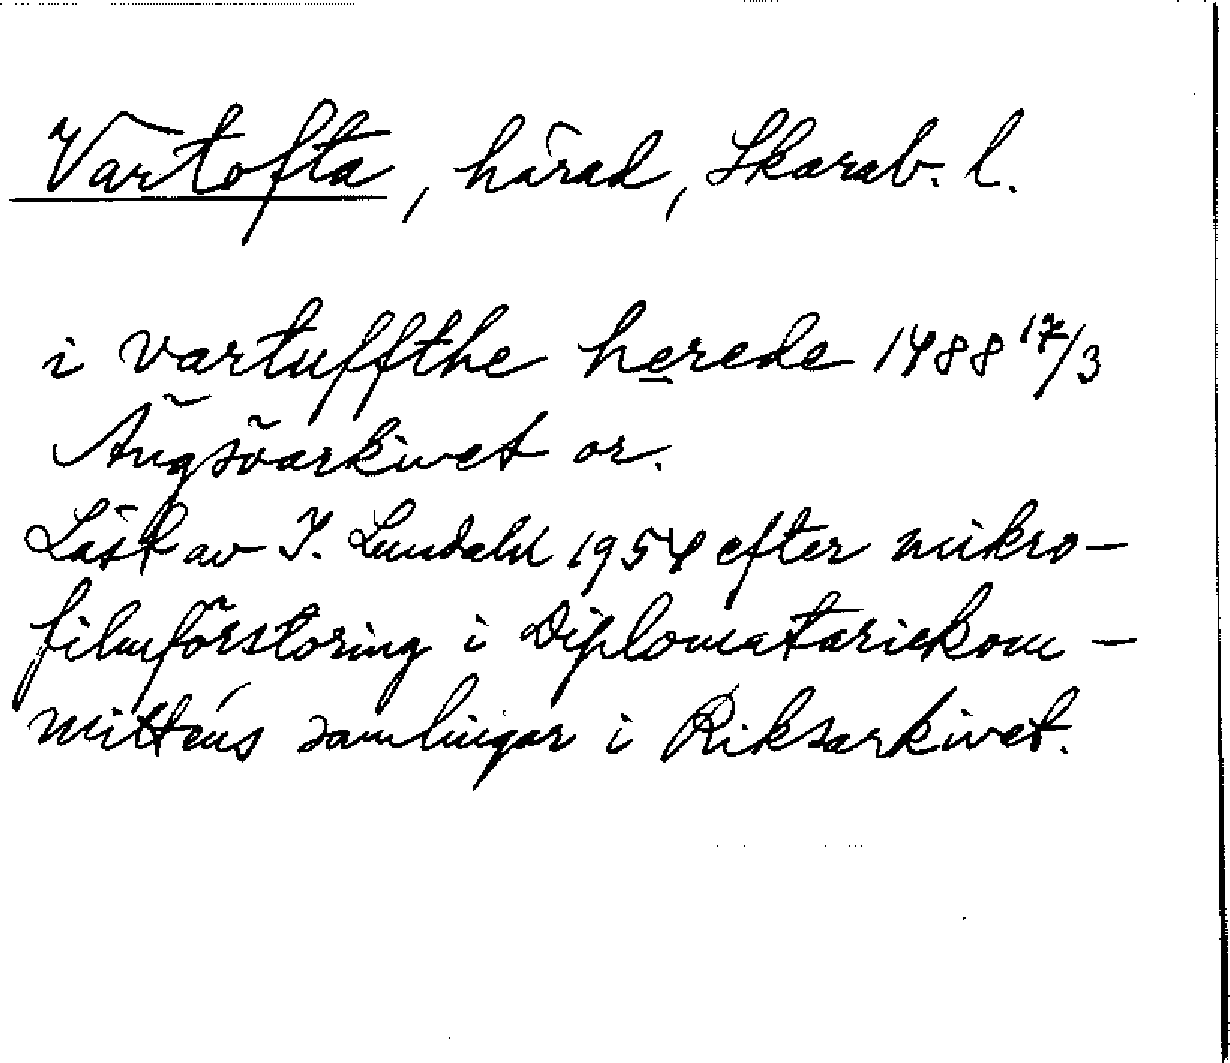 Vartofta, härad, Skarab. l.
i vartuffthe herede 1488 17/3
Ängsöarkivet or.
Läst av I. Lundahl 1954 efter mikro-
filmförstoring i Diplomatariekom-
mitténs samlingar i Riksarkivet.